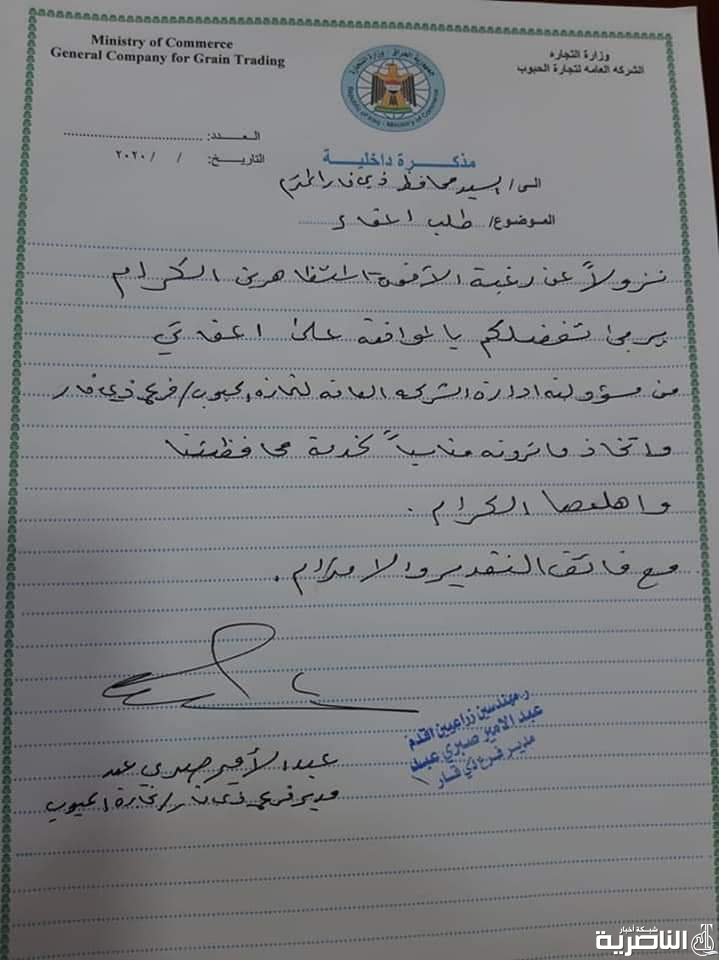 Ministry of Commerce
General Company for Grain Trading
وزارة التجاره
الشركه العامه لتجارة الحبوب
جمهورية العراق - وزارة التجارة
Republic of Iraq - Ministry of Commerce
العـــدد: ......................................
التاريخ: / / ٢٠٢٠
مذكـــرة داخليــة
الـى/ السيد محافظ ذي قار المحترم
الموضوع/ طلب اعفاء
نزولاً عن رغبة الأخوة المتظاهرين الكرام
يرجى تفضلكم بالموافقة على اعفائي
من مسؤولية ادارة الشركه العامه لتجارة الحبوب/ فرع ذي قار
واتخاذ ماترونه مناسباً لخدمة محافظتنا
واهلها الكرام .
مع فائق التقدير والاحترام .
ر.مهندسين زراعيين اقدم
عبد الامير صبري عبد
مدير فرع ذي قار
عبد الأمير صبري عبد
مدير فرع ذي قار / تجارة الحبوب
شبكة أخبار
الناصرية